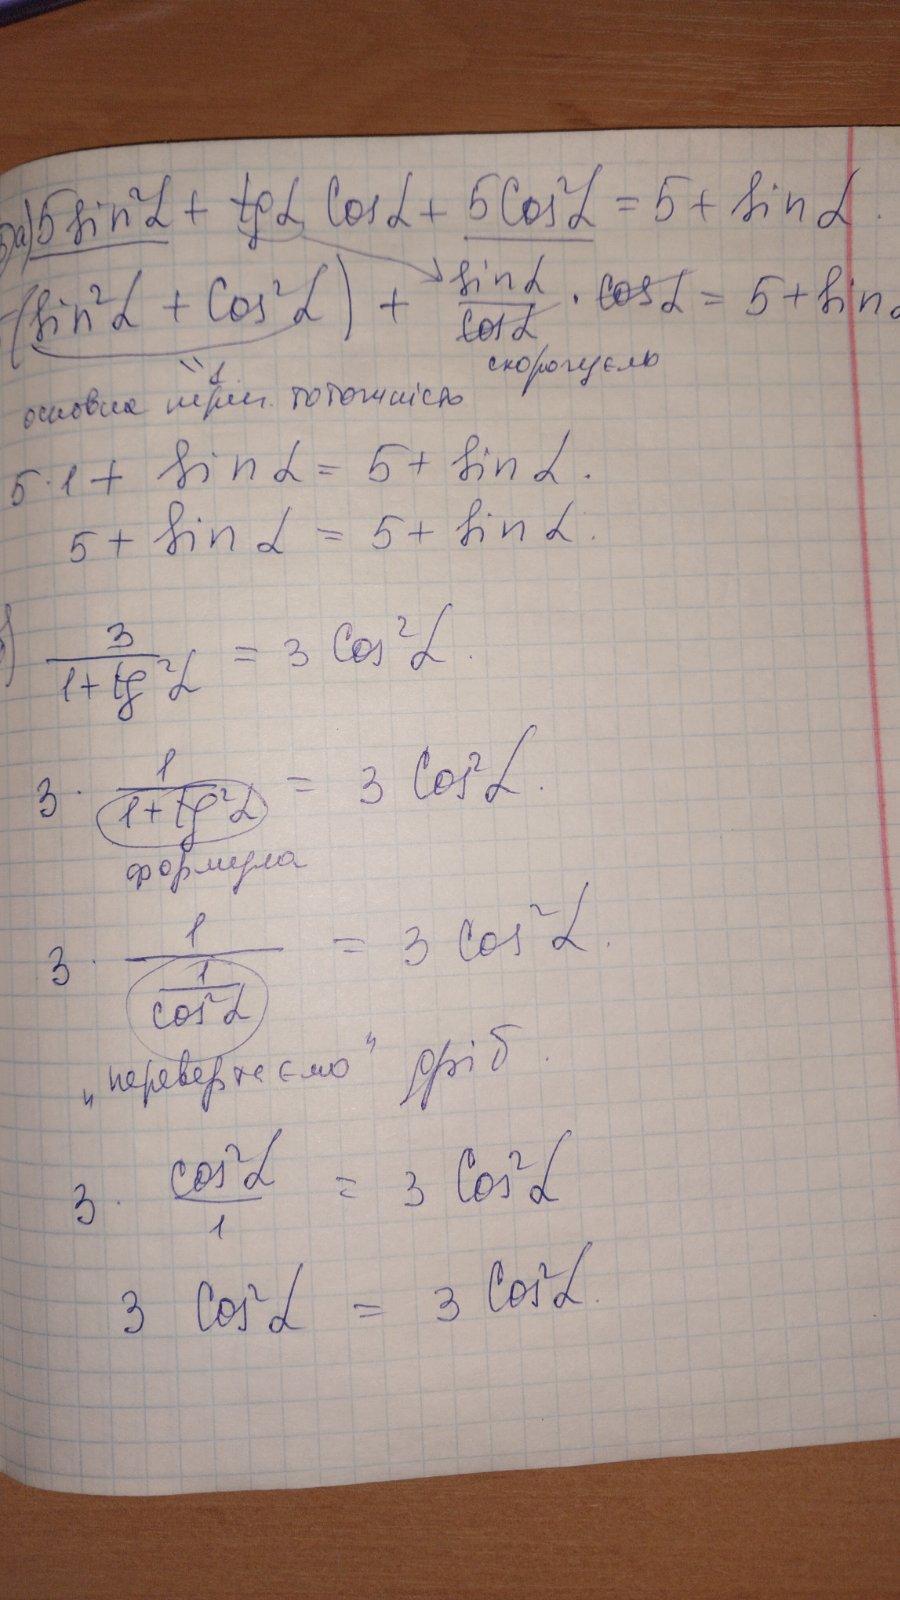 а) 5 sin²α + tgα Cosα + 5Cos²α = 5 + sinα.
(sin²α + Cos²α) + sinα/cosα · cosα = 5 + sinα
"1 скорочуємо
основна триг. тотожність
5·1 + sinα = 5 + sinα.
5 + sinα = 5 + sinα.
3/(1+tg²α) = 3 Cos²α.
3 · 1/(1+tg²α) = 3 Cos²α.
формула
3 · 1/(1/cos²α) = 3 cos²α.
„перевертаємо" дріб.
3 · cos²α/1 = 3 Cos²α
3 Cos²α = 3 Cos²α.